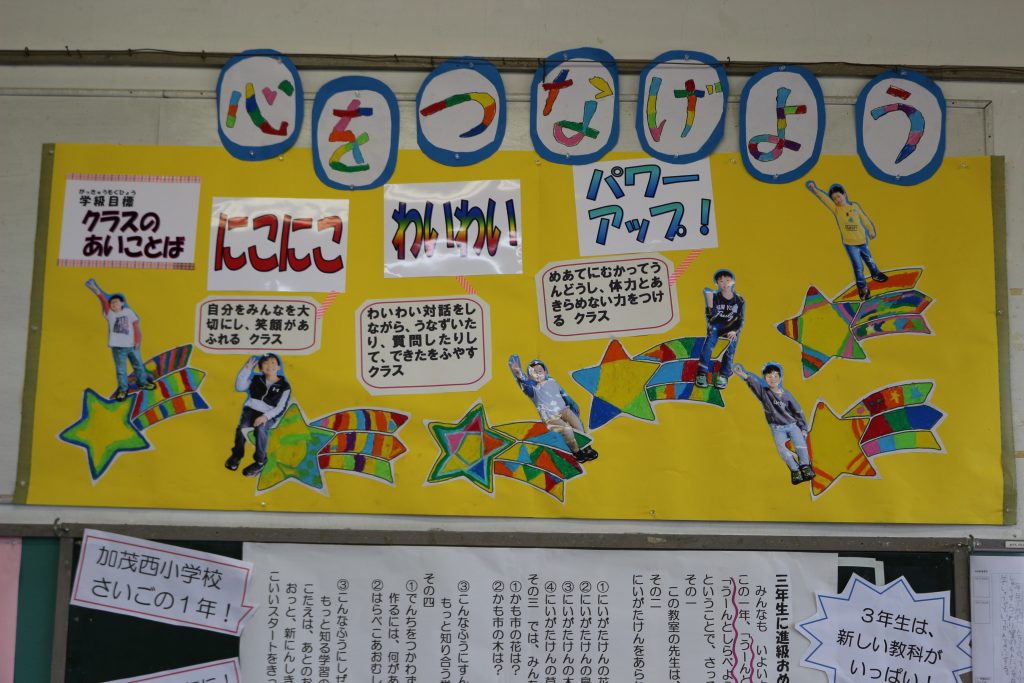 心をつなげよう
がっきゅうもくひょう
学級目標
クラスの
あいことば
にこにこ
わいわい
パワー
アップ！
自分をみんなを大
切にし、笑顔があ
ふれる クラス
わいわい対話をし
ながら、うなずいた
り、質問したりし
て、できたをふやす
クラス
めあてにむかってう
んどうし、体力とあ
きらめない力をつけ
る クラス
加茂西小学校
さいごの１年！
三年生に進級お
みんなも いよい
この一年、「うーんと
「うーんとしらべよ
ということで、さっ
その一
この教室の先生は、
その二
にいがたけんをあら
①にいがたけんの花
②にいがたけんの鳥
③にいがたけんの木
④にいがたけんの草
その三 では、みん
①かも市の花は？
②かも市の木は？
③こんなふうにすん
もっと知り合う
その四
①でんちをつかわず
作るには、何があ
②はらぺこあおむし
③こんなふうにしぜ
もっと知る学習の
こたえは、あとのお
おっと、新にんしき
こいいスタートをきっ
３年生は、
新しい教科が
いっぱい！